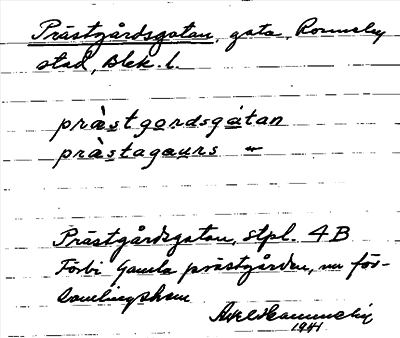 Prästgårdsgatan, gata, Ronneby
stad, Blek. l.
prästgordsgatan
prästagaurs  "
Prästgårdsgatan, stpl. 4 B
Förbi gamla prästgården, nu för-
samlingshem
1941